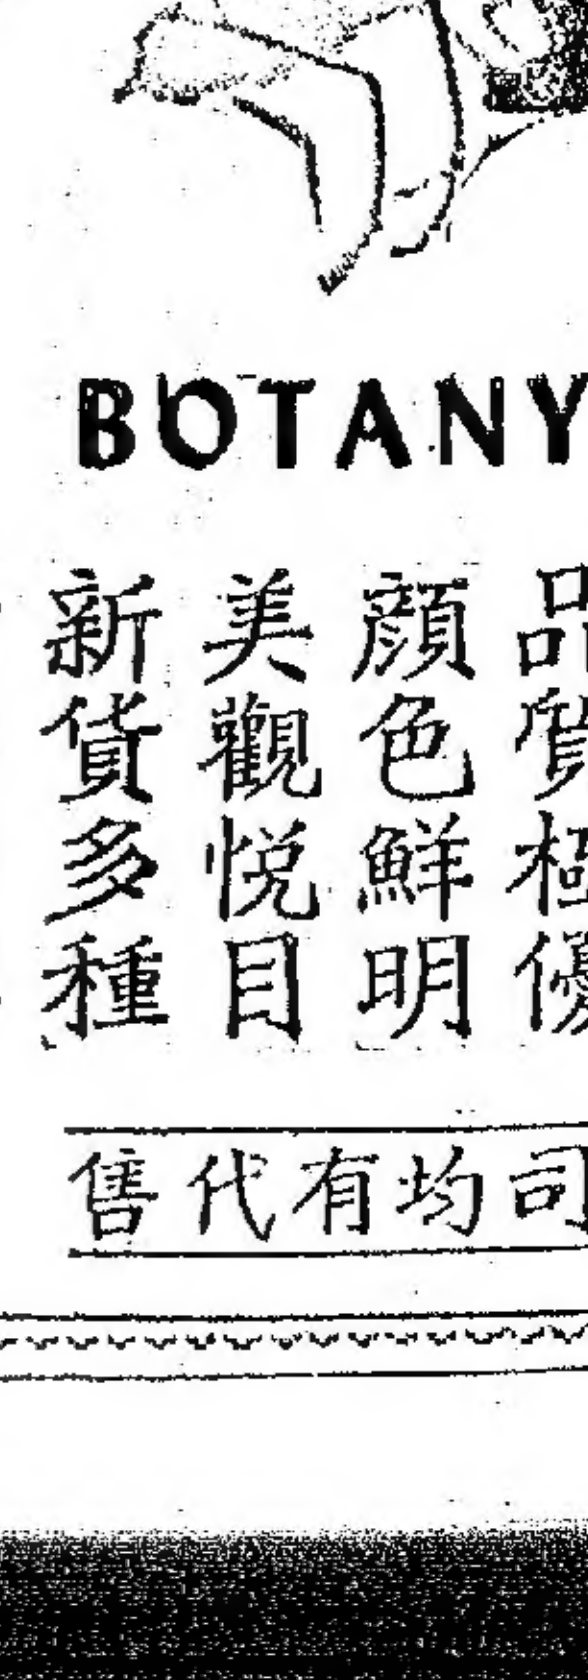 BOTANY
品質極優
顏色鮮明
美觀悅目
新貨多種
司均有代售